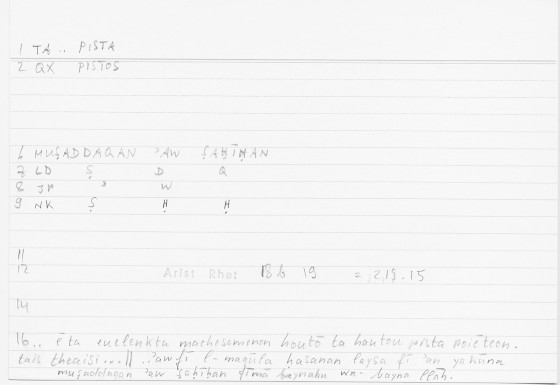 1 TA .. PISTA
2 QX PISTOS
6 MUṢADDAQAN ʾAW ṢAḤĪḤAN
7 LD Ṣ D Q
8 JP ʾ W
9 NK Ṣ Ḥ Ḥ
11
12 Arist Rhet 18b 19 = 2,19.15
14
16.. ē ta euelenkta machesamenon houtō ta hautou pista poiēteon.
tais theaisi...|| ..ʾaw fī l-maqūla ḥasanan laysa fī ʾan yakūna
muṣaddaqan ʾaw ṣaḥīḥan fīmā baynahu wa-bayna llāh.